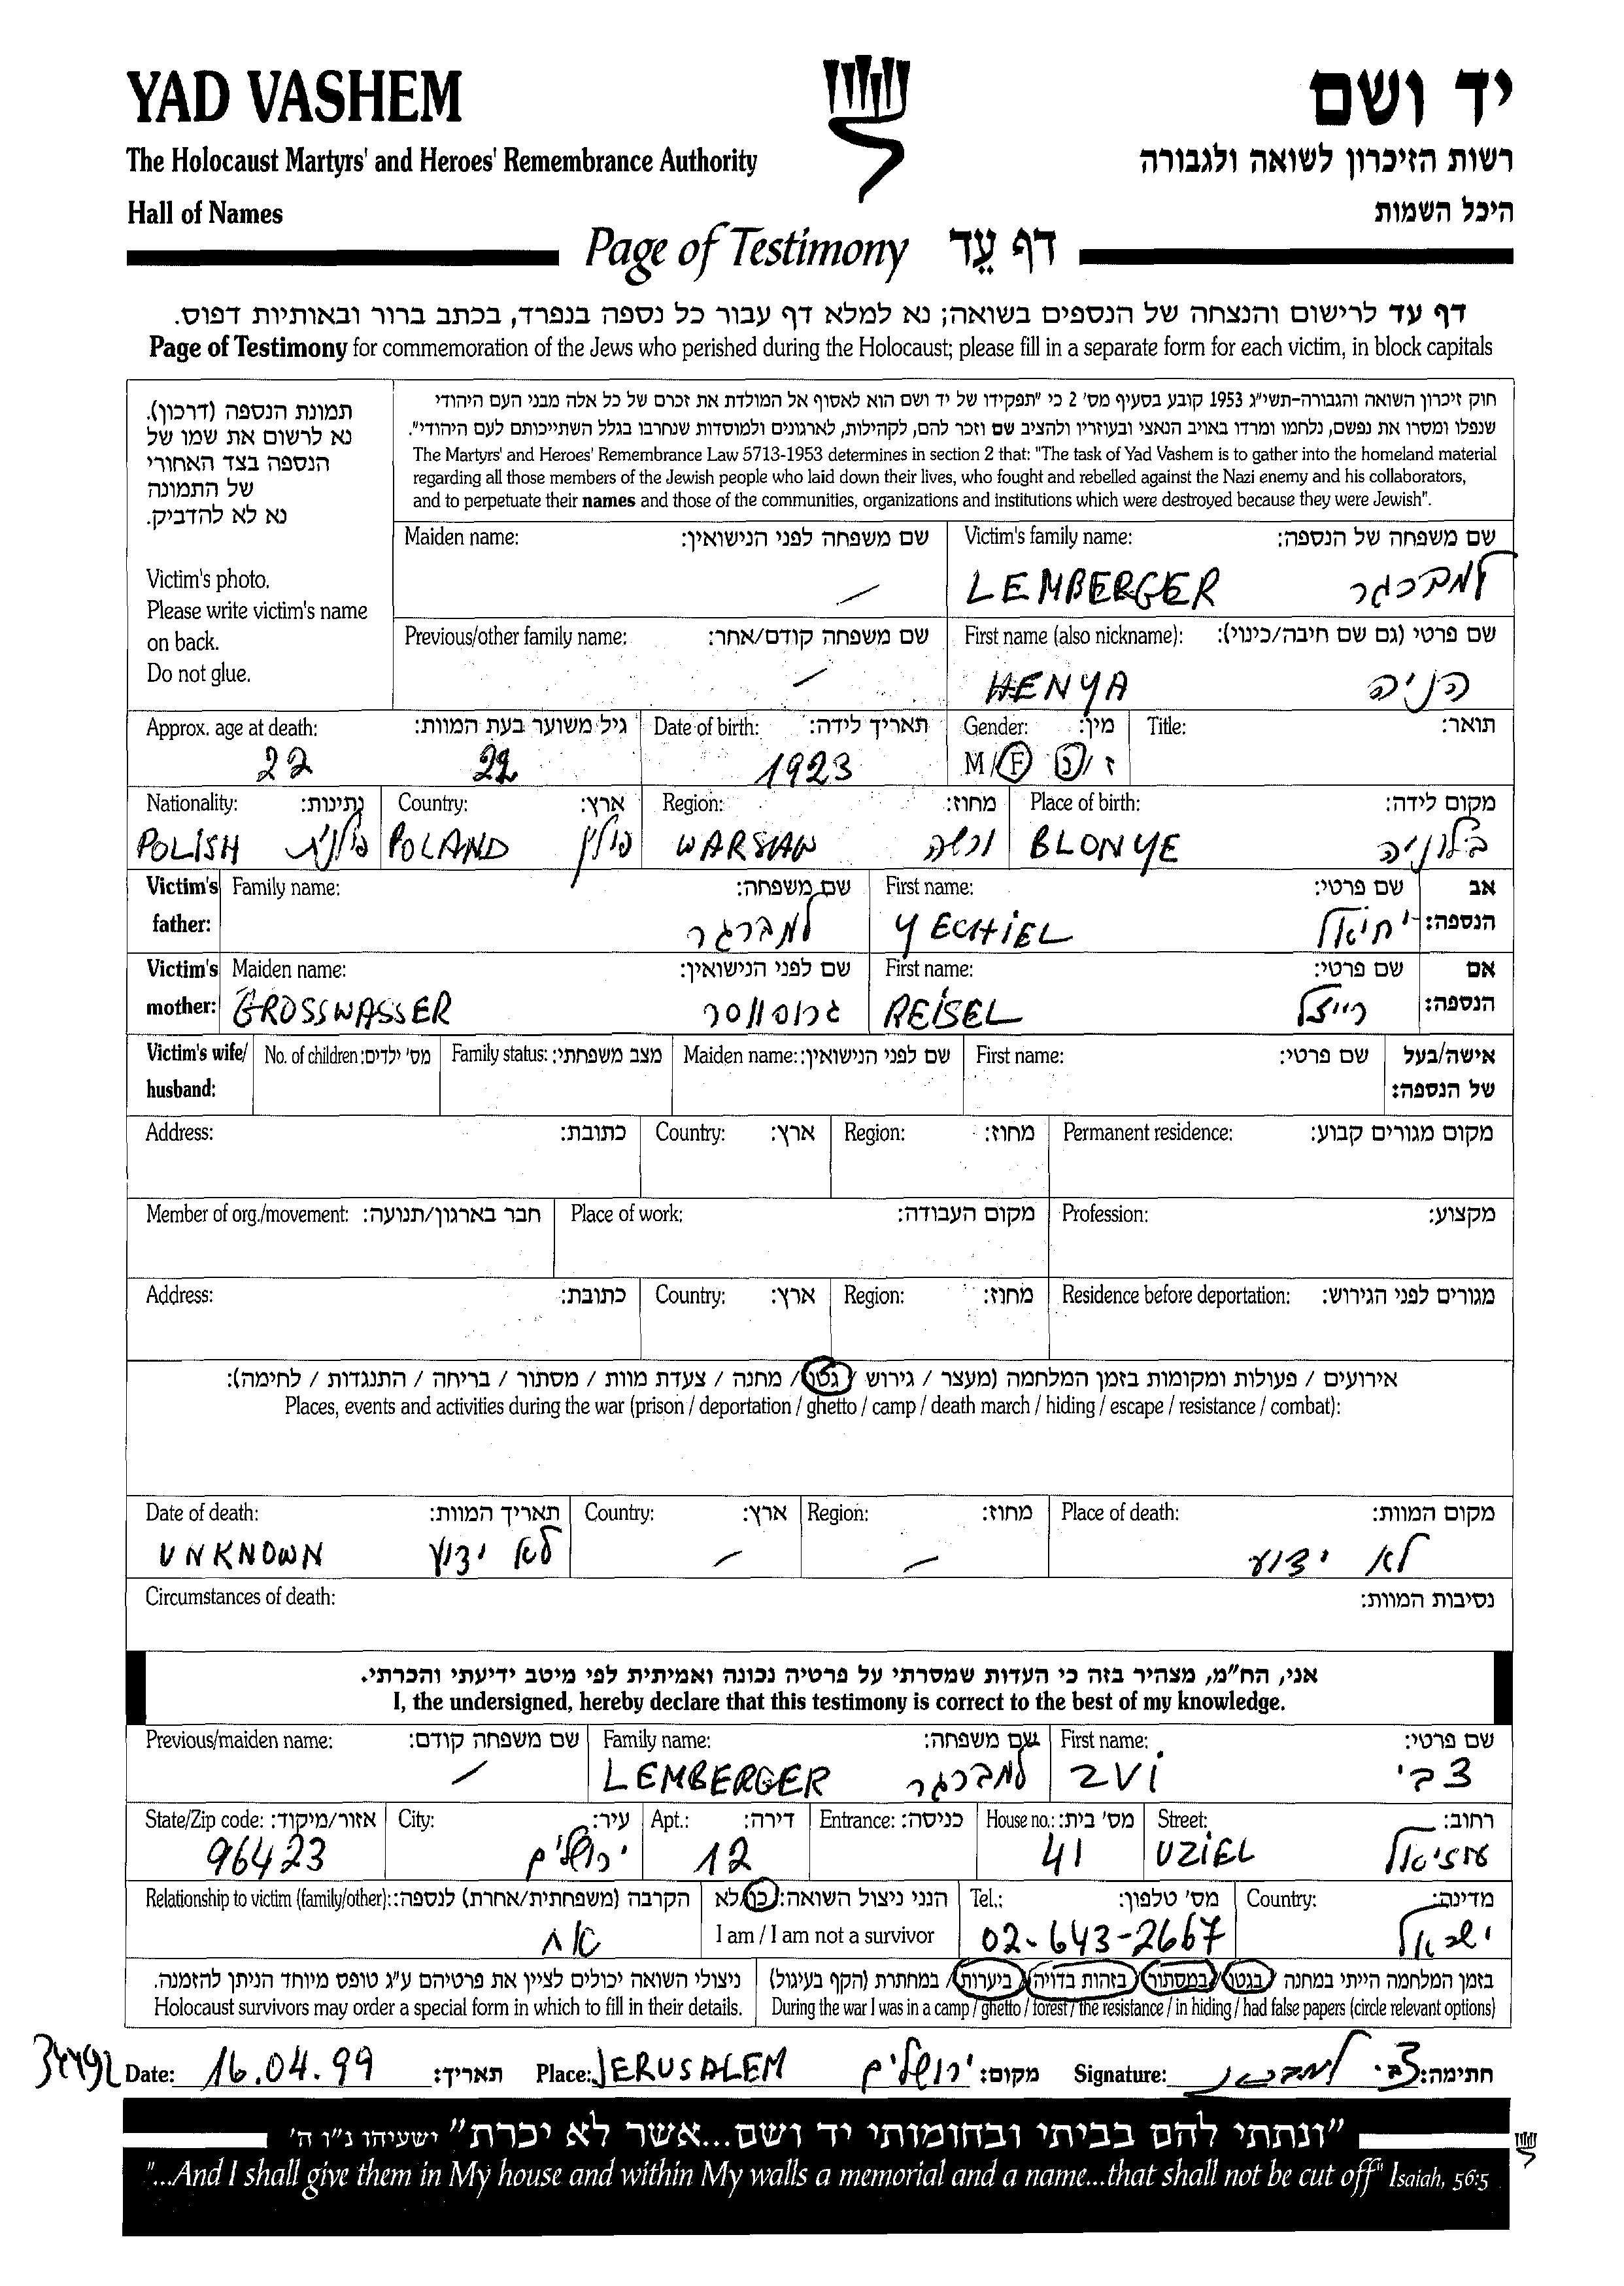 YAD VASHEM
יד ושם
The Holocaust Martyrs' and Heroes' Remembrance Authority
רשות הזיכרון לשואה ולגבורה
Hall of Names
היכל השמות
Page of Testimony דף עֵד
דף עד לרישום והנצחה של הנספים בשואה; נא למלא דף עבור כל נספה בנפרד, בכתב ברור ובאותיות דפוס.
Page of Testimony for commemoration of the Jews who perished during the Holocaust; please fill in a separate form for each victim, in block capitals
תמונת הנספה (דרכון).
נא לרשום את שמו של
הנספה בצד האחורי
של התמונה
נא לא להדביק.
Victim's photo.
Please write victim's name
on back.
Do not glue.
חוק זיכרון השואה והגבורה-תשי"ג 1953 קובע בסעיף מס' 2 כי "תפקידו של יד ושם הוא לאסוף אל המולדת את זכרם של כל אלה מבני העם היהודי
שנפלו ומסרו את נפשם, נלחמו ומרדו באויב הנאצי ובעוזריו ולהציב שם וזכר להם, לקהילות, לארגונים ולמוסדות שנחרבו בגלל השתייכותם לעם היהודי".
The Martyrs' and Heroes' Remembrance Law 5713-1953 determines in section 2 that: "The task of Yad Vashem is to gather into the homeland material
regarding all those members of the Jewish people who laid down their lives, who fought and rebelled against the Nazi enemy and his collaborators,
and to perpetuate their names and those of the communities, organizations and institutions which were destroyed because they were Jewish".
Maiden name: שם משפחה לפני הנישואין: Victim's family name: שם משפחה של הנספה:
– LEMBERGER למברגר
Previous/other family name: שם משפחה קודם/אחר: First name (also nickname): שם פרטי (גם שם חיבה/כינוי):
– HENYA הניה
Approx. age at death: גיל משוער בעת המוות: Date of birth: תאריך לידה: Gender: מין: Title: תואר:
22 22 1923 M/F ז/נ
Nationality: נתינות: Country: ארץ: Region: מחוז: Place of birth: מקום לידה:
POLISH פולנית POLAND פולין WARSAW ורשה BLONYE בלוניה
Victim's father: Family name: שם משפחה: First name: שם פרטי: אב הנספה:
למברגר YECHIEL יחיאל
Victim's mother: Maiden name: שם לפני הנישואין: First name: שם פרטי: אם הנספה:
GROSSWASSER גרוסווסר REISEL רייזל
Victim's wife/husband: No. of children: מס' ילדים: Family status: מצב משפחתי: Maiden name: שם לפני הנישואין: First name: שם פרטי: אישה/בעל של הנספה:
Address: כתובת: Country: ארץ: Region: מחוז: Permanent residence: מקום מגורים קבוע:
Member of org./movement: חבר בארגון/תנועה: Place of work: מקום העבודה: Profession: מקצוע:
Address: כתובת: Country: ארץ: Region: מחוז: Residence before deportation: מגורים לפני הגירוש:
אירועים / פעולות ומקומות בזמן המלחמה (מעצר / גירוש / גטו / מחנה / צעדת מוות / מסתור / בריחה / התנגדות / לחימה):
Places, events and activities during the war (prison / deportation / ghetto / camp / death march / hiding / escape / resistance / combat):
Date of death: תאריך המוות: Country: ארץ: Region: מחוז: Place of death: מקום המוות:
UNKNOWN לא ידוע – – לא ידוע
Circumstances of death: נסיבות המוות:
אני, הח"מ, מצהיר בזה כי העדות שמסרתי על פרטיה נכונה ואמיתית לפי מיטב ידיעתי והכרתי.
I, the undersigned, hereby declare that this testimony is correct to the best of my knowledge.
Previous/maiden name: שם משפחה קודם: Family name: שם משפחה: First name: שם פרטי:
– LEMBERGER למברגר ZVI צבי
State/Zip code: אזור/מיקוד: City: עיר: Apt.: דירה: Entrance: כניסה: House no.: מס' בית: Street: רחוב:
96423 ירושלים 12 41 UZIEL עוזיאל
Relationship to victim (family/other): הקרבה (משפחתית/אחרת) לנספה: הנני ניצול השואה: כן/לא Tel.: מס' טלפון: Country: מדינה:
אח I am / I am not a survivor 02-643-2667 ישראל
ניצולי השואה יכולים לציין את פרטיהם ע"ג טופס מיוחד הניתן להזמנה.
Holocaust survivors may order a special form in which to fill in their details.
בזמן המלחמה הייתי במחנה / בגטו / במסתור / בזהות בדויה / ביערות / במחתרת (הקף בעיגול)
During the war I was in a camp / ghetto / forest / the resistance / in hiding / had false papers (circle relevant options)
Date: 16.04.99 תאריך: Place: JERUSALEM ירושלים מקום: Signature: צבי למברגר חתימה:
"ונתתי להם בביתי ובחומותי יד ושם...אשר לא יכרת" ישעיהו נ"ו ה'
"...And I shall give them in My house and within My walls a memorial and a name...that shall not be cut off" Isaiah, 56:5